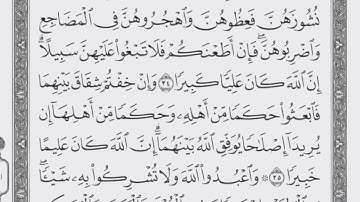 نُشُوزَهُنَّ فَعِظُوهُنَّ وَٱهْجُرُوهُنَّ فِي ٱلْمَضَاجِعِ
وَٱضْرِبُوهُنَّۖ فَإِنْ أَطَعْنَكُمْ فَلَا تَبْغُوا۟ عَلَيْهِنَّ سَبِيلًاۗ
إِنَّ ٱللَّهَ كَانَ عَلِيًّا كَبِيرًا ٣٤ وَإِنْ خِفْتُمْ شِقَاقَ بَيْنِهِمَا
فَٱبْعَثُوا۟ حَكَمًا مِّنْ أَهْلِهِۦ وَحَكَمًا مِّنْ أَهْلِهَآ إِن
يُرِيدَآ إِصْلَٰحًا يُوَفِّقِ ٱللَّهُ بَيْنَهُمَآۗ إِنَّ ٱللَّهَ كَانَ عَلِيمًا
خَبِيرًا ٣٥ ۞ وَٱعْبُدُوا۟ ٱللَّهَ وَلَا تُشْرِكُوا۟ بِهِۦ شَيْـًٔاۖ